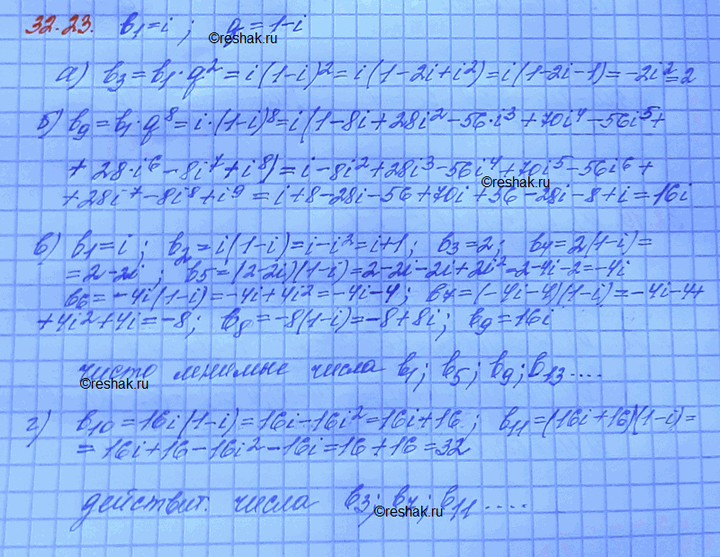 32.23. b₁=i ; q=1-i
©reshak.ru
а) b₃=b₁·q²=i(1-i)²=i(1-2i+i²)=i(1-2i-1)=-2i²=2
б) b₉=b₁·q⁸=i·(1-i)⁸=i(1-8i+28i²-56·i³+70i⁴-56i⁵+
+28·i⁶-8i⁷+i⁸)=i-8i²+28i³-56i⁴+70i⁵-56i⁶+
©reshak.ru
+28i⁷-8i⁸+i⁹=i+8-28i-56+70i+56-28i-8+i=16i
в) b₁=i; b₂=i(1-i)=i-i²=i+1; b₃=2; b₄=2(1-i)=
=2-2i; b₅=(2-2i)(1-i)=2-2i-2i+2i²=2-4i-2=-4i
b₆=-4i(1-i)=-4i+4i²=-4i-4; b₇=(-4i-4)(1-i)=-4i-4+
+4i²+4i=-8; b₈=-8(1-i)=-8+8i; b₉=16i
чисто мнимые числа b₁; b₅; b₉; b₁₃....
©reshak.ru
г) b₁₀=16i(1-i)=16i-16i²=16i+16; b₁₁=(16i+16)(1-i)=
=16i+16-16i²-16i=16+16=32
действит. числа b₃; b₇; b₁₁....
©reshak.ru